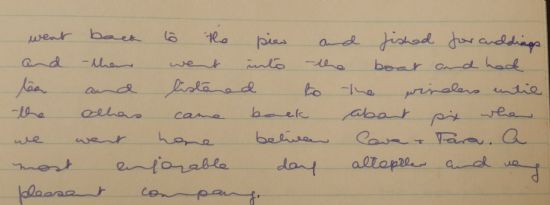 went back to the pier and fished for cuddings
and then went into the boat and had
tea and listened to the wireless until
the others came back about six when
we went home between Cava + Fara. A
most enjoyable day altogether and very
pleasant company.